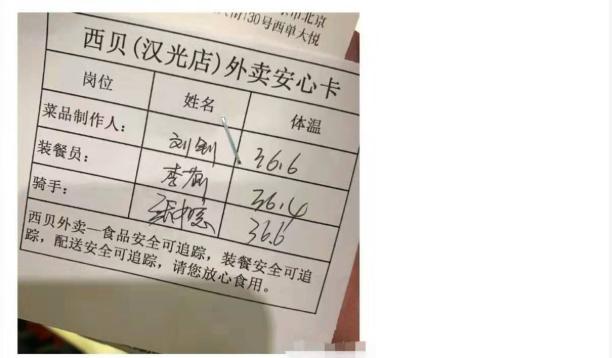 市北京
130号西单大悦
西贝(汉光店)外卖安心卡
岗位 姓名 体温
菜品制作人： 36.6
装餐员： 36.4
骑手： 36.6
西贝外卖—食品安全可追踪，装餐安全可追
踪，配送安全可追踪，请您放心食用。